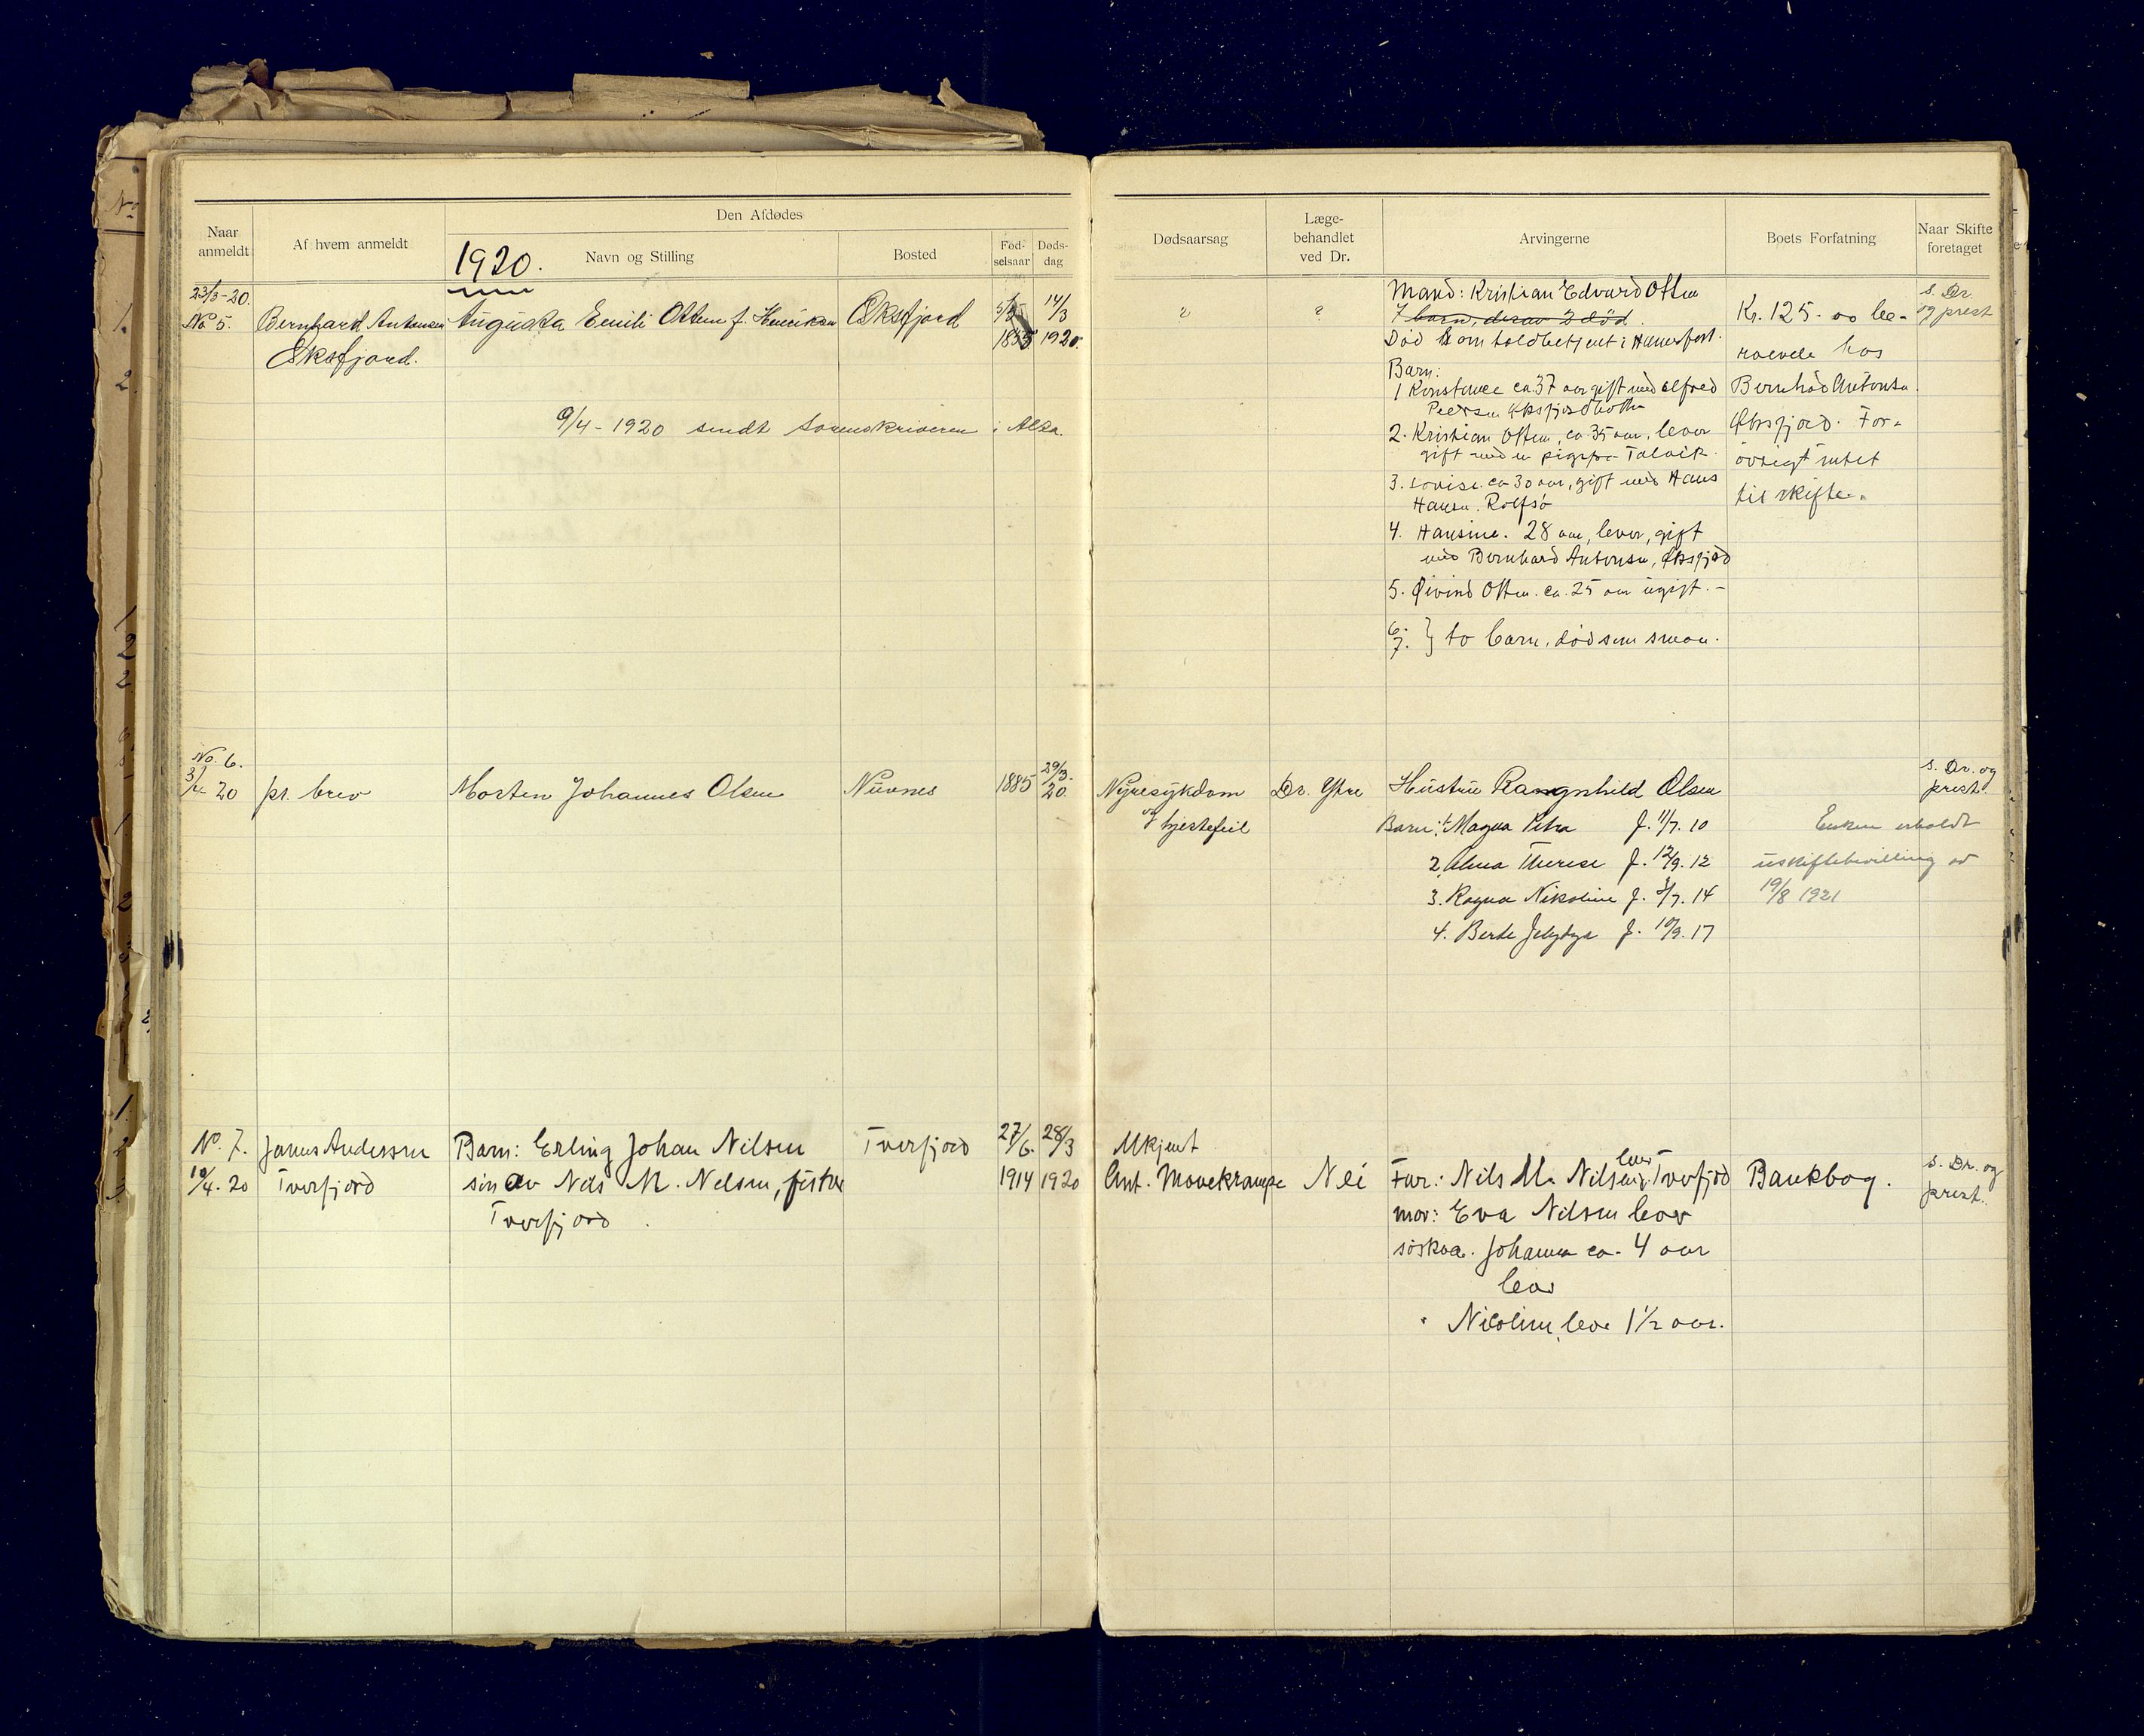 Naar anmeldt
Af hvem anmeldt
Den Afdødes
1920.
Navn og Stilling
Bosted
Fød-selsaar
Døds-dag
Dødsaarsag
Læge-behandlet ved Dr.
Arvingerne
Boets Forfatning
Naar Skifte foretaget
23/3-20.
No 5.
Bernhard Antonsen
Øksfjord.
Augusta Emili Ottem f. Henriksen
Øksfjord
14/3
1920.
9/4 - 1920 sendt sorenskriveren i Alta.
?
?
Mand: Kristian Edvard Ottem
7 barn, derav 2 død.
Død som toldbetjent i Hammerfest.
Barn:
1 Konstance ca 37 aar gift med Alfred
2. Kristian Ottem, ca. 35 aar, lever
gift med en pige fra Talvik.
3. Lovise. ca 30 aar, gift med Hans
Hansen. Rolfsø
4. Hansine. 28 aar, lever, gift
med Bernhard Antonsen, Øksfjord
5. Øivind Ottem. ca. 25 aar ugift. -
6. 7. } to barn, død som smaa.
Kr. 125.- oo be-
roende hos
Bernhard Antonsen.
Øksfjord. For-
øvrigt intet
til skifte.
s. Dr.
og prest
No. 6.
3/4 20
pr. brev
Morten Johannes Olsen
Nuvnes
1885
29/3. 20.
Nyresykdom
og hjertefeil
Dr. Ytre
Hustru Ragnhild Olsen
Barn: 1. Magna Petra f. 11/7. 10
2. Alma Therese f. 12/9. 12
3. Ragna Nikoline f. 7. 14
4. Berte f. 10/9. 17
Enken erholdt
uskiftebevilling av
19/8 1921
s. Dr. og
prest.
No. 7.
10/4. 20
Janus Anderssen
Tverfjord
Barn: Erling Johan Nilsen
søn av Nils M. Nilsen, fisker
Tverfjord.
Tverfjord
27/6.
1914
28/3
1920
Ukjent
Ant. Mavekrampe
Nei
lever
Far: Nils M. Nilsen, Tverfjord
mor: Eva Nilsen lever
søsken. Johanna ca. 4 aar
lever
" Nicoline, lever 1 1/2 aar.
Bankbog.
s. Dr. og
prest.